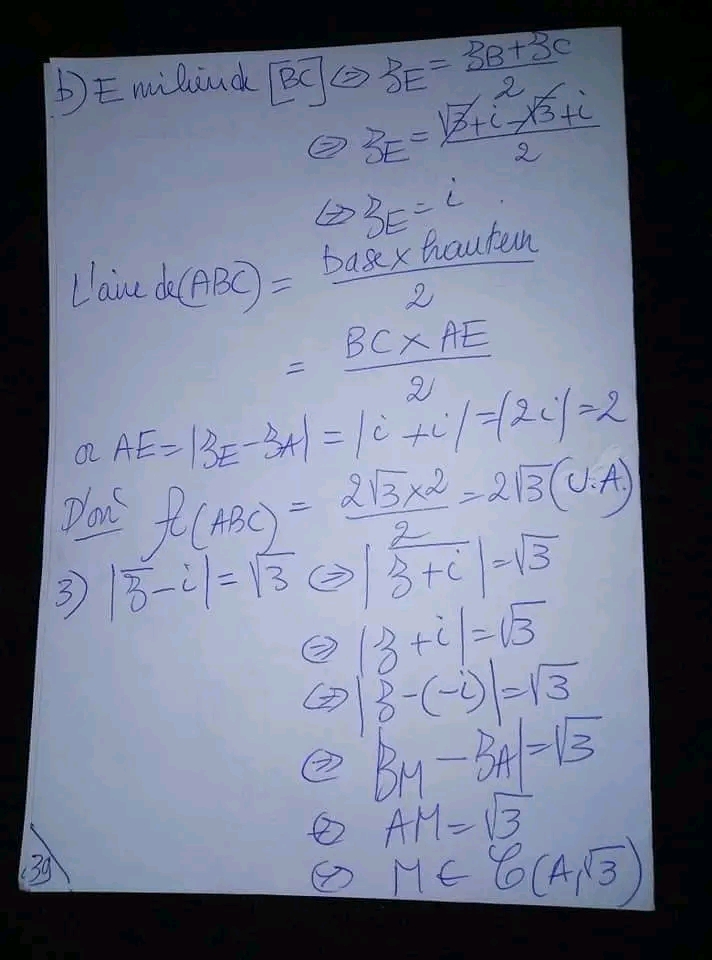 b) E milieu de [BC] ⇔ zE = (zB + zC)/2
⇔ zE = (√3 + i - √3 + i)/2
⇔ zE = i
L'aire de (ABC) = (base × hauteur)/2
= (BC × AE)/2
or AE = |zE - zA| = |i + i| = |2i| = 2
D'où A(ABC) = (2√3 × 2)/2 = 2√3 (U.A.)
3) |z̅ - i| = √3 ⇔ |z̅ ̅+̅ ̅i̅| = √3
⇔ |z + i| = √3
⇔ |z - (-i)| = √3
⇔ |zM - zA| = √3
⇔ AM = √3
⇔ M ∈ C(A, √3)
39